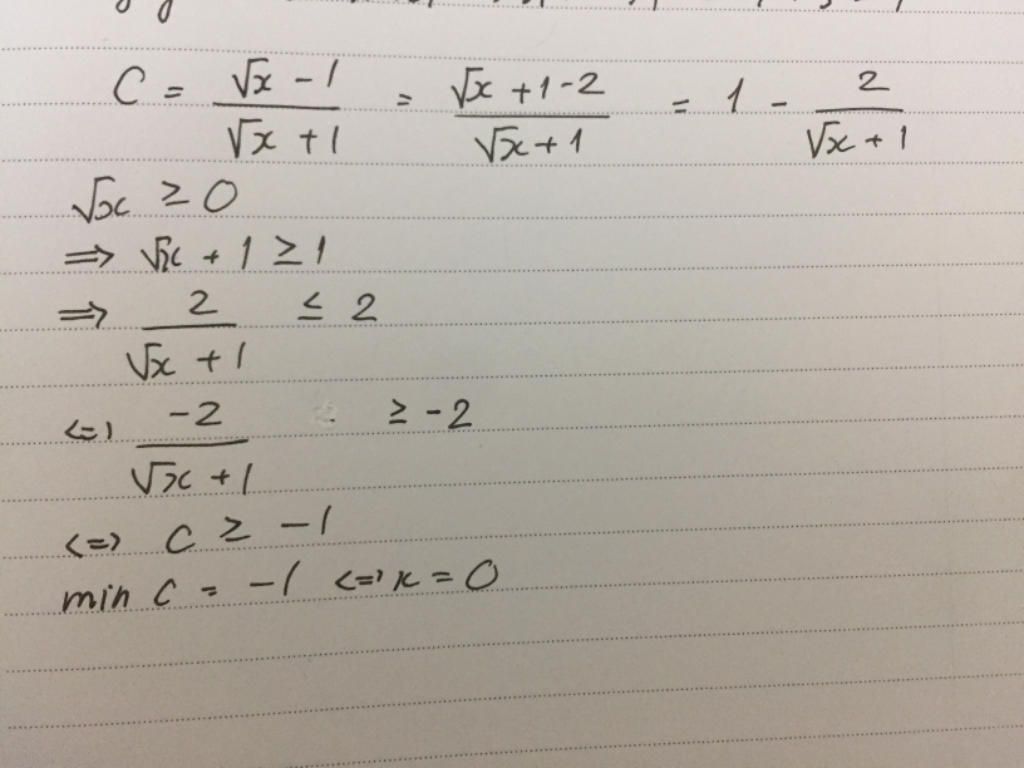 C = (√x - 1)/(√x + 1) = (√x + 1 - 2)/(√x + 1) = 1 - 2/(√x + 1)
√x ≥ 0
⇒ √x + 1 ≥ 1
⇒ 2/(√x + 1) ≤ 2
<=> -2/(√x + 1) ≥ -2
<=> C ≥ -1
min C = -1 <=> x = 0